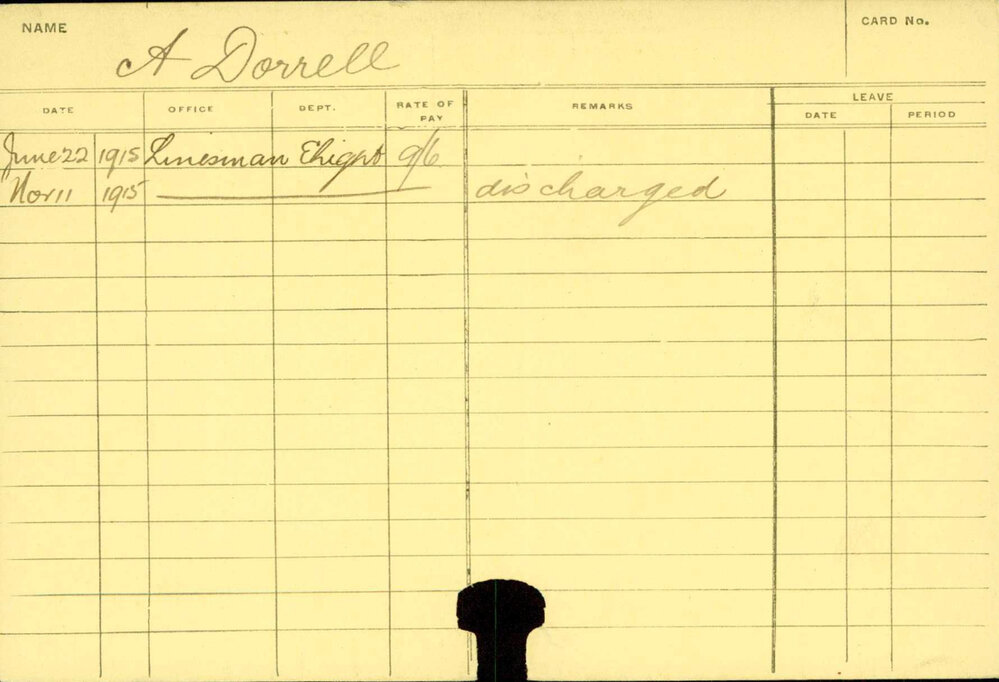 NAME A Dorrell CARD No.
DATE OFFICE DEPT. RATE OF PAY REMARKS LEAVE DATE PERIOD
June 22 1915 Linesman Elight 9/6
Nov 11 1915 discharged